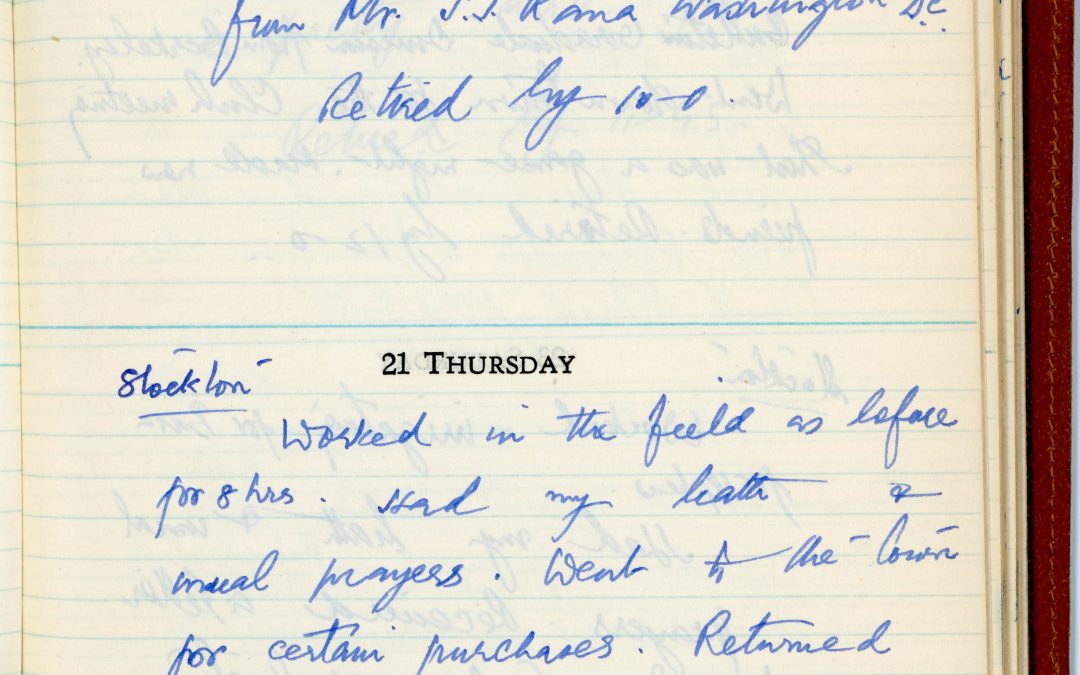 from Mr. J.J. Rana Washington D.C.
Retired by 10-0.
21 THURSDAY
Stockton
Worked in the field as before
for 8 hrs. Had my bath &
usual prayers. Went to the town
for certain purchases. Returned